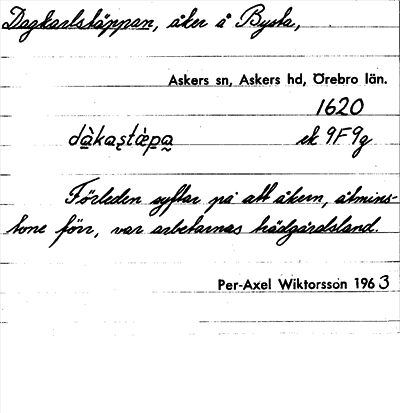 Dagkarlstäppan, åker å Bysta,
Askers sn, Askers hd, Örebro län.
1620
dàkaştæ̀pa ek 9F9g
Förleden syftar på att åkern, åtmins-
tone förr, var arbetarnas trädgårdsland.
Per-Axel Wiktorsson 1963